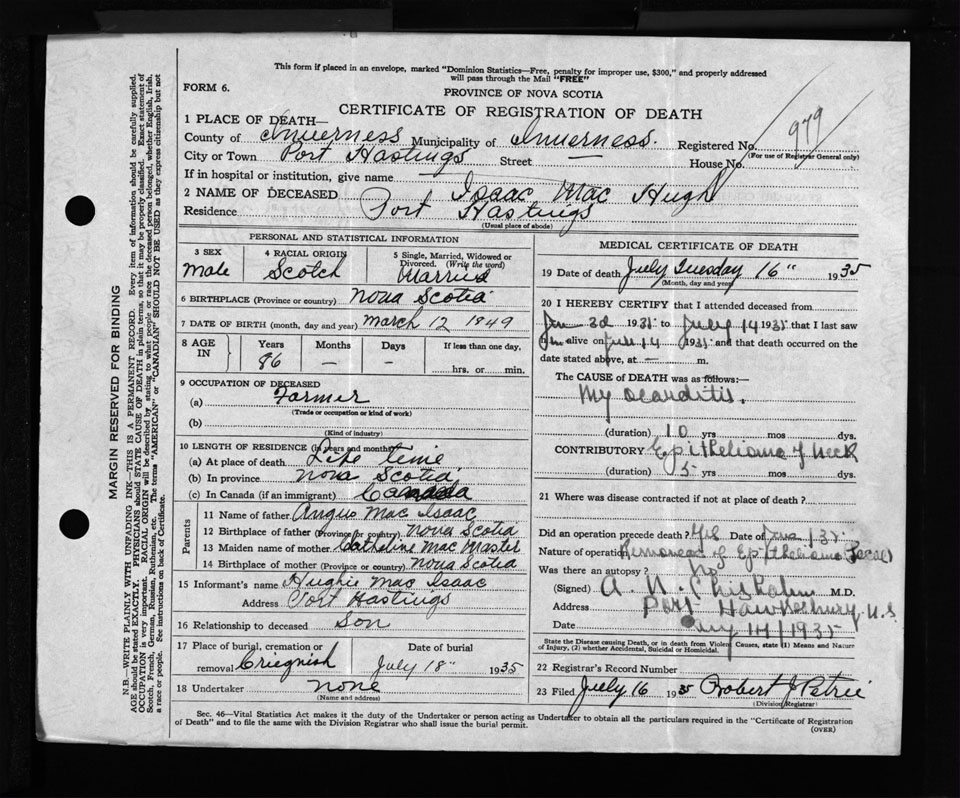 This form if placed in an envelope, marked "Dominion Statistics—Free, penalty for improper use, $300," and properly addressed
will pass through the Mail "FREE"
FORM 6.
PROVINCE OF NOVA SCOTIA
CERTIFICATE OF REGISTRATION OF DEATH
979
1 PLACE OF DEATH—
County of Inverness Municipality of Inverness. Registered No.
(For use of Registrar General only)
City or Town Port Hastings Street — House No.
If in hospital or institution, give name
2 NAME OF DECEASED Isaac Mac Hugh
Residence Port Hastings
(Usual place of abode)
PERSONAL AND STATISTICAL INFORMATION
3 SEX
Male
4 RACIAL ORIGIN
Scotch
5 Single, Married, Widowed or
Divorced. (Write the word)
Married
6 BIRTHPLACE (Province or country) Nova Scotia
7 DATE OF BIRTH (month, day and year) March 12 1849
8 AGE IN
Years Months Days If less than one day,
86 — — hrs. or min.
9 OCCUPATION OF DECEASED
(a) Farmer
(Trade or occupation or kind of work)
(b)
(Kind of industry)
10 LENGTH OF RESIDENCE (in years and months)
(a) At place of death Life time
(b) In province Nova Scotia
(c) In Canada (if an immigrant) Canada
Parents
11 Name of father Angus Mac Isaac
12 Birthplace of father (Province or country) Nova Scotia
13 Maiden name of mother Catheline Mac Master
14 Birthplace of mother (Province or country) Nova Scotia
15 Informant's name Hughie Mac Isaac
Address Port Hastings
16 Relationship to deceased Son
17 Place of burial, cremation or Date of burial
removal Criegnish July 18" 1935
18 Undertaker none
(Name and address)
MEDICAL CERTIFICATE OF DEATH
19 Date of death July Tuesday 16" 1935
(Month, day and year)
20 I HEREBY CERTIFY that I attended deceased from
1935 to July 14 1935 that I last saw
him alive on July 14 1935 and that death occurred on the
date stated above, at — m.
The CAUSE OF DEATH was as follows:—
Myocarditis.
(duration) 10 yrs mos dys.
CONTRIBUTORY Epithelioma of Neck
(duration) 5 yrs mos dys.
21 Where was disease contracted if not at place of death?
Did an operation precede death? Yes Date of
Nature of operation Removal of Epithelioma
Was there an autopsy? No
(Signed) A. N. Chisholm M.D.
Address Port Hawkesbury N.S.
Date 14/1935
State the Disease causing Death, or in death from Violent Causes, state (1) Means and Nature
of Injury, (2) whether Accidental, Suicidal or Homicidal.
22 Registrar's Record Number
23 Filed July 16 1935 Robert J Petrie
(Division Registrar)
Sec. 46—Vital Statistics Act makes it the duty of the Undertaker or person acting as Undertaker to obtain all the particulars required in the "Certificate of Registration
of Death" and to file the same with the Division Registrar who shall issue the burial permit.
(OVER)
MARGIN RESERVED FOR BINDING
N.B.—WRITE PLAINLY WITH UNFADING INK—THIS IS A PERMANENT RECORD. Every item of information should be carefully supplied.
AGE should be stated EXACTLY. PHYSICIANS should STATE CAUSE OF DEATH in plain terms, so that it may be properly classified. Exact statement of
OCCUPATION is very important. RACIAL ORIGIN will be described by stating to what people or race the deceased person belonged, whether English, Irish,
Scotch, French, German, Russian, Ruthenian, etc. The terms "AMERICAN" or "CANADIAN" SHOULD NOT BE USED as they express citizenship but not
a race or people. See instructions on back of Certificate.